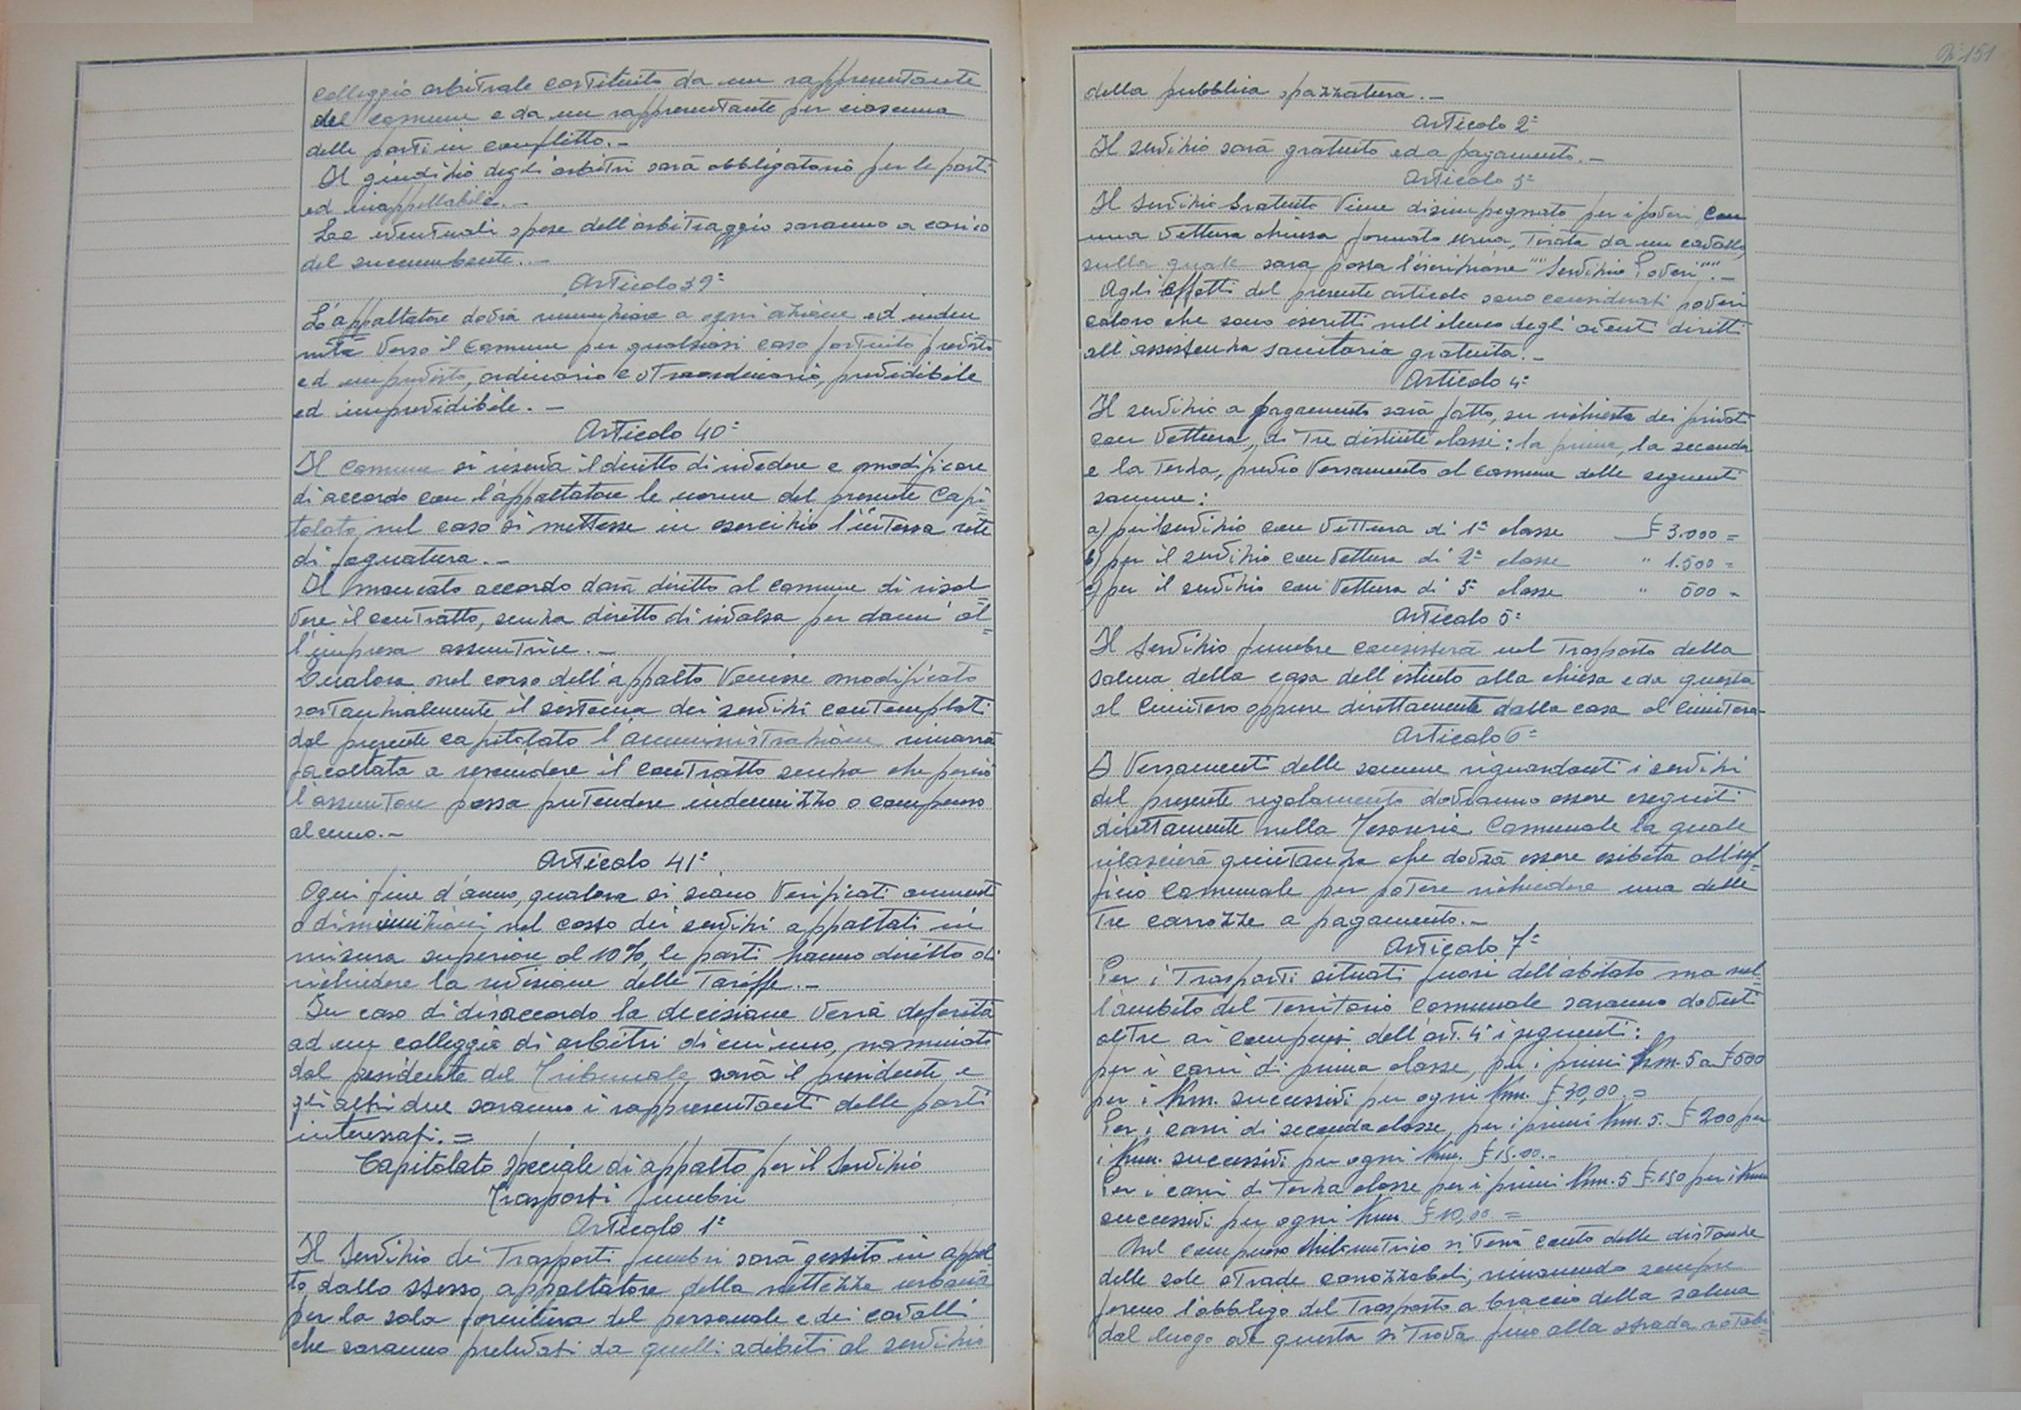 collegio arbitrale costituito da un rappresentante
del comune e da un rappresentante per ciascuna
delle parti in conflitto.-
Il giudizio degli arbitri sarà obbligatorio per le parti
ed inappellabile.-
Le eventuali spese dell'arbitraggio saranno a carico
del succumbente.-
Articolo 39°
L'appaltatore dovrà rinunziare a ogni azione ed inden
nità verso il Comune per qualsiasi caso fortuito previsto
ed imprevisto, ordinario e straordinario, prevedibile
ed imprevidibile.-
Articolo 40°
Il Comune si riserva il diritto di rivedere e modificare
di accordo con l'appaltatore le norme del presente Capi=
tolato nel caso si mettesse in esercizio l'intera rete
di fognatura.-
Il mancato accordo darà diritto al Comune di risol
vere il contratto, senza diritto di rivalsa per danni al=
l'impresa assuntrice.-
Qualora nel corso dell'appalto venisse modificato
sostanzialmente il sistema dei servizi contemplati
dal presente capitolato l'amministrazione rimarrà
facoltata a rescindere il contratto senza che perciò
l'assuntore possa pretendere indennizzo o compenso
alcuno.-
Articolo 41°
Ogni fine d'anno, qualora si siano verificati aumenti
o diminuzioni nel costo dei servizi appaltati in
misura superiore al 10%, le parti hanno diritto di
richiedere la revisione delle tariffe.-
In caso di disaccordo la decisione verrà deferita
ad un colleggio di arbitri di cui uno, nominato
dal presidente del Tribunale sarà il presidente e
gli altri due saranno i rappresentanti delle parti
interessati.=
Capitolato speciale di appalto per il Servizio
Trasporti funebri
Articolo 1°
Il Servizio dei Trasporti funebri sarà gestito in appal
to dallo stesso appaltatore della nettezza urbana
per la sola fornitura del personale e dei cavalli
che saranno prelevati da quelli adibiti al servizio
151
della pubblica spazzatura.-
Articolo 2°
Il servizio sarà gratuito ed a pagamento.-
Articolo 3°
Il servizio gratuito viene disimpegnato per i poveri con
una vettura chiusa formato urna, tirata da un cavallo,
sulla quale sarà possa l'iscrizione ""Servizio Poveri"".-
Agli effetti del presente articolo sono considerati poveri
coloro che sono iscritti nell'elenco degli aventi diritti
all'assistenza sanitaria gratuita.-
Articolo 4°
Il servizio a pagamento sarà fatto, su richiesta dei privati
con vettura, di tre distinte classi: la prima, la seconda
e la terza, previo versamento al Comune delle seguenti
somme:
a) per servizio con vettura di 1ª classe £ 3.000=
b) per il servizio con vettura di 2ª classe " 1.500=
c) per il servizio con vettura di 3ª classe " 500-
Articolo 5°
Il Servizio funebre consisterà nel trasporto della
salma della casa dell'estinto alla chiesa e da questa
al Cimitero oppure direttamente dalla casa al Cimitero-
Articolo 6°
I versamenti delle somme riguardanti i servizi
del presente regolamento dovranno essere eseguiti
direttamente nella Tesoreria Comunale la quale
rilascierà quietanza che dovrà essere esibita all'uf=
ficio Comunale per potere richiedere una delle
tre carrozze a pagamento.-
Articolo 7°
Per i trasporti situati fuori dell'abitato ma nel=
l'ambito del territorio Comunale saranno dovuti
oltre ai compensi dell'art. 4° i seguenti:
per i carri di prima classe, per i primi Km. 5 a £ 500
per i Km. successivi per ogni Km. £ 30,00=
Per i carri di seconda classe, per i primi Km. 5. £ 200 per
i Km. successivi per ogni Km. £ 15.00.-
Per i carri di terza classe per i primi Km. 5 £. 150 per i Km
successivi per ogni Km £ 10,00=
Nel compenso Kilometrico si terrà conto delle distanze
delle sole strade carrozzabili, rimanendo sempre
fermo l'obbligo del trasporto a braccio della salma
dal luogo ove questa si trova fino alla strada rotabi=